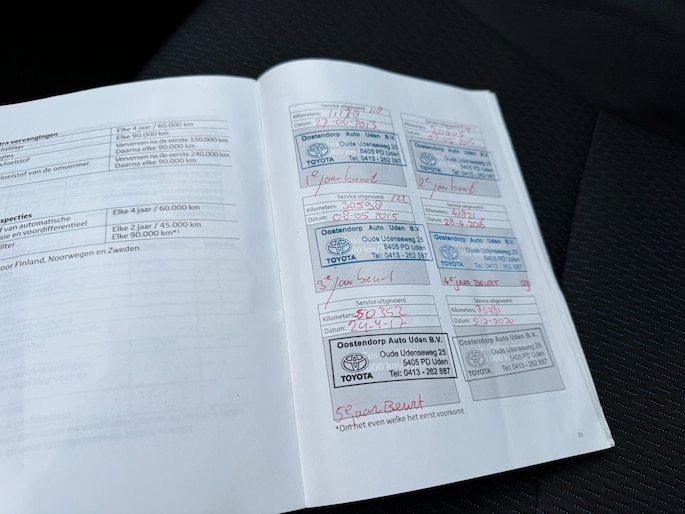 tra vervangingen
Elke 4 jaar / 60.000 km
chtfilter
Elke 90.000 km
gies
Verversen na de eerste 150.000 km
Daarna elke 90.000 km
vloeistof
Verversen na de eerste 240.000 km
Daarna elke 90.000 km
loeistof van de omvormer
specties
Elke 4 jaar / 60.000 km
f van automatische
sie en voordifferentieel
Elke 2 jaar / 45.000 km
Elke 90.000 km*¹
ilter
oor Finland, Noorwegen en Zweden
Service uitgevoerd
Kilometers:
Datum: 27-06-2013
Oostendorp Auto Uden B.V.
Oude Udenseweg 25
5405 PD Uden
Tel: 0413 - 262 887
TOYOTA
1e jaarbeurt
Service uitgevoerd
Kilometers:
Datum:
Oostendorp Auto Uden B.V.
Oude Udenseweg 25
5405 PD Uden
Tel: 0413 - 262 887
TOYOTA
2e jaarbeurt
Service uitgevoerd
Kilometers: 30598
Datum: 08-05-2015
Oostendorp Auto Uden B.V.
Oude Udenseweg 25
5405 PD Uden
Tel: 0413 - 262 887
TOYOTA
3e jaarbeurt
Service uitgevoerd
Kilometers: 41821
Datum:
Oostendorp Auto Uden B.V.
Oude Udenseweg 25
5405 PD Uden
Tel: 0413 - 262 887
TOYOTA
4e JAAR BEURT
Service uitgevoerd
Kilometers: 50352
Datum: 24-4-17
Oostendorp Auto Uden B.V.
Oude Udenseweg 25
5405 PD Uden
Tel: 0413 - 262 887
TOYOTA
5e jaar Beurt
Service uitgevoerd
Kilometers:
Datum: 5-2-2020
Oostendorp Auto Uden B.V.
Oude Udenseweg 25
5405 PD Uden
Tel: 0413 - 262 887
TOYOTA
*Om het even welke het eerst voorkomt